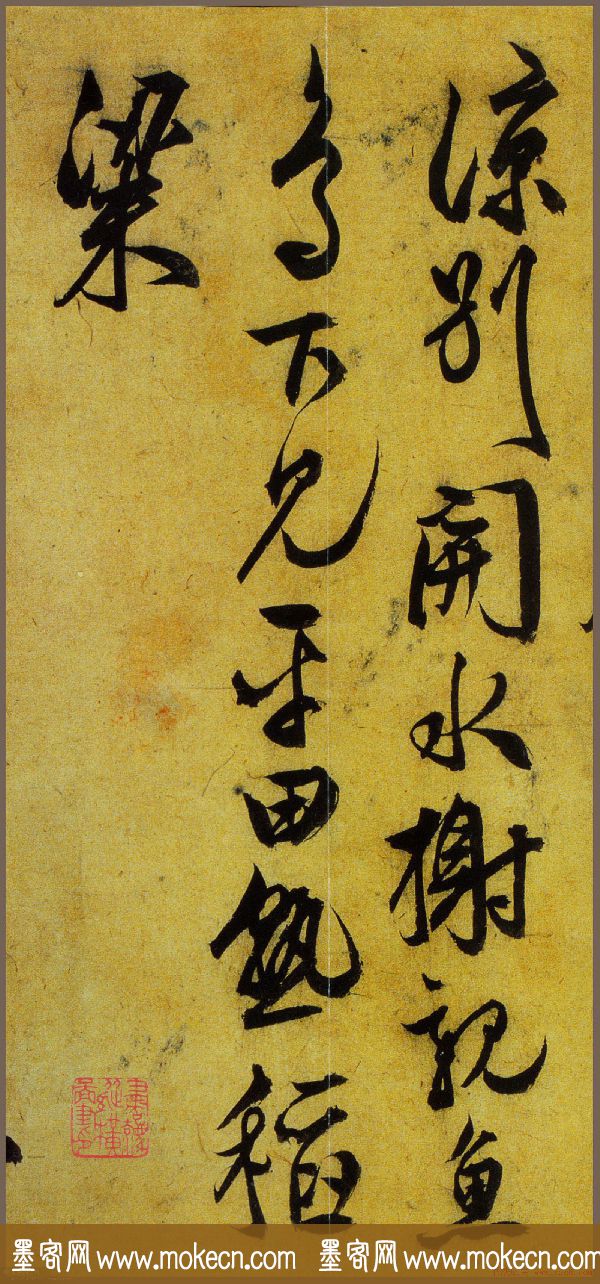 涼別開水榭親魚
鳥下見平田熟稻
粱
墨客网 www.mokecn.com 墨客网 www.mokecn.com